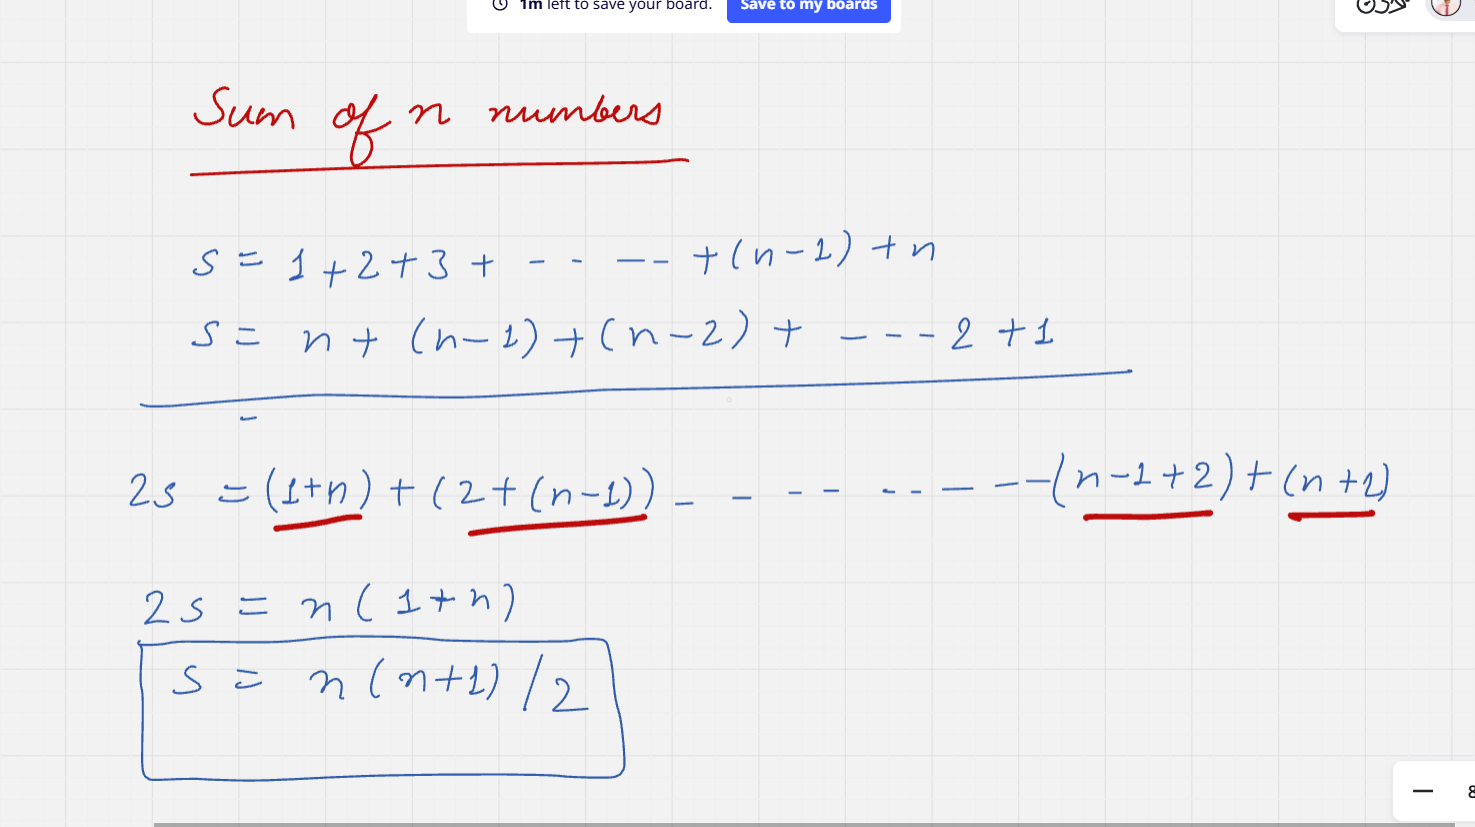 1m left to save your board. Save to my boards
Sum of n numbers
S = 1 + 2 + 3 + - - - - - + (n - 1) + n
S = n + (n - 1) + (n - 2) + - - - - 2 + 1
-
2s = (1+n) + (2 + (n-1)) - - - - - - - - - (n - 1 + 2) + (n + 1)
2s = n (1 + n)
S = n (n+1) / 2
8